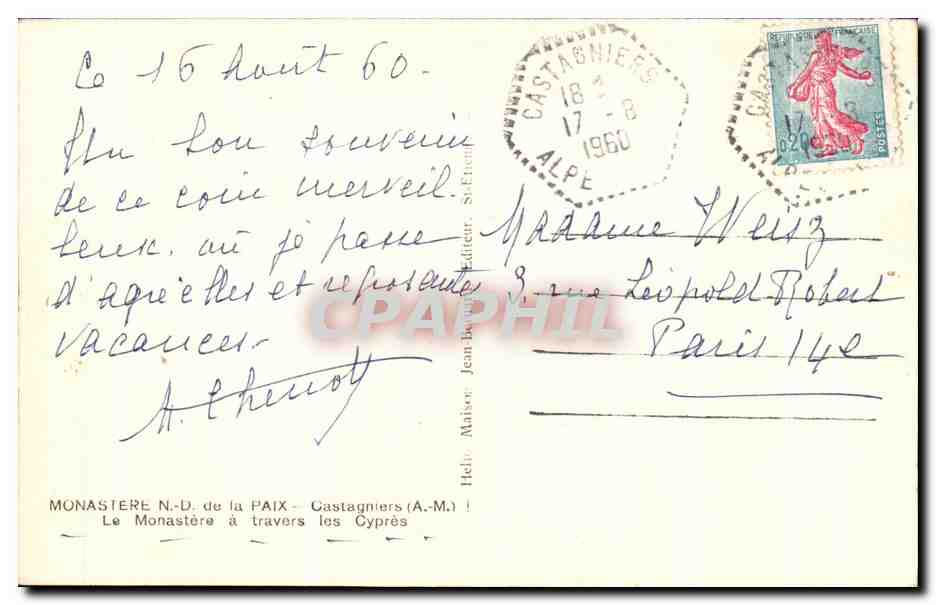 Ce 16 Août 60 -
Un bon souvenir
de ce coin merveil-
leux. où je passe
d'agréables et reposantes
vacances -
CASTAGNIERS
18 H
17 - 8
1960
ALPE
REPUBLIQUE FRANÇAISE
0,20
POSTES
Madame Weisz
3, rue Léopold-Robert
Paris 14e
CPAPHIL
Helio Maison Jean-
Editeur. St-Etienne
MONASTERE N.-D. de la PAIX - Castagniers (A.-M.) !
Le Monastère à travers les Cyprès